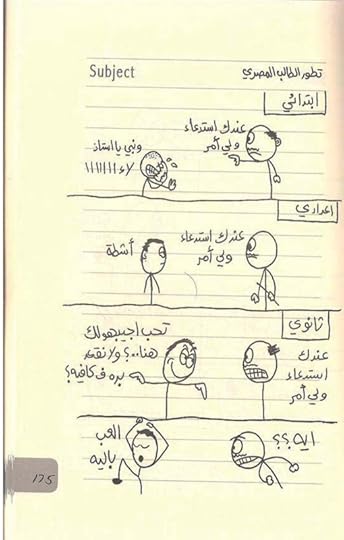 تطور الطالب المصري
Subject
ابتدائي
عندك استدعاء
ولي أمر
ونبي يا استاذ
لاء ااااااا
اعدادي
عندك استدعاء
ولي أمر
أشطة
ثانوي
عندك
استدعاء
ولي أمر
تحب اجيبهولك
هنا..؟ ولا نقعد
بره ف كافيه؟
ايه؟؟
العب
باليه
175